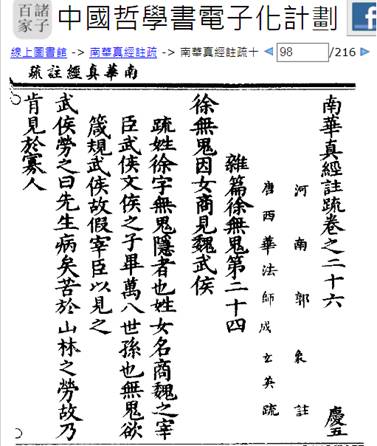 諸子百家
中國哲學書電子化計劃
線上圖書館 -> 南華真經註疏 -> 南華真經註疏十
98 /216
南華真經註疏
南華真經註疏卷之二十六 慶五
河南郭象註
唐西華法師成玄英疏
雜篇徐無鬼第二十四
徐無鬼因女商見魏武侯
疏姓徐字無鬼隱者也姓女名商魏之宰
臣武侯文侯之子畢萬八世孫也無鬼欲
箴規武侯故假宰臣以見之
武侯勞之曰先生病矣苦於山林之勞故乃
肯見於寡人